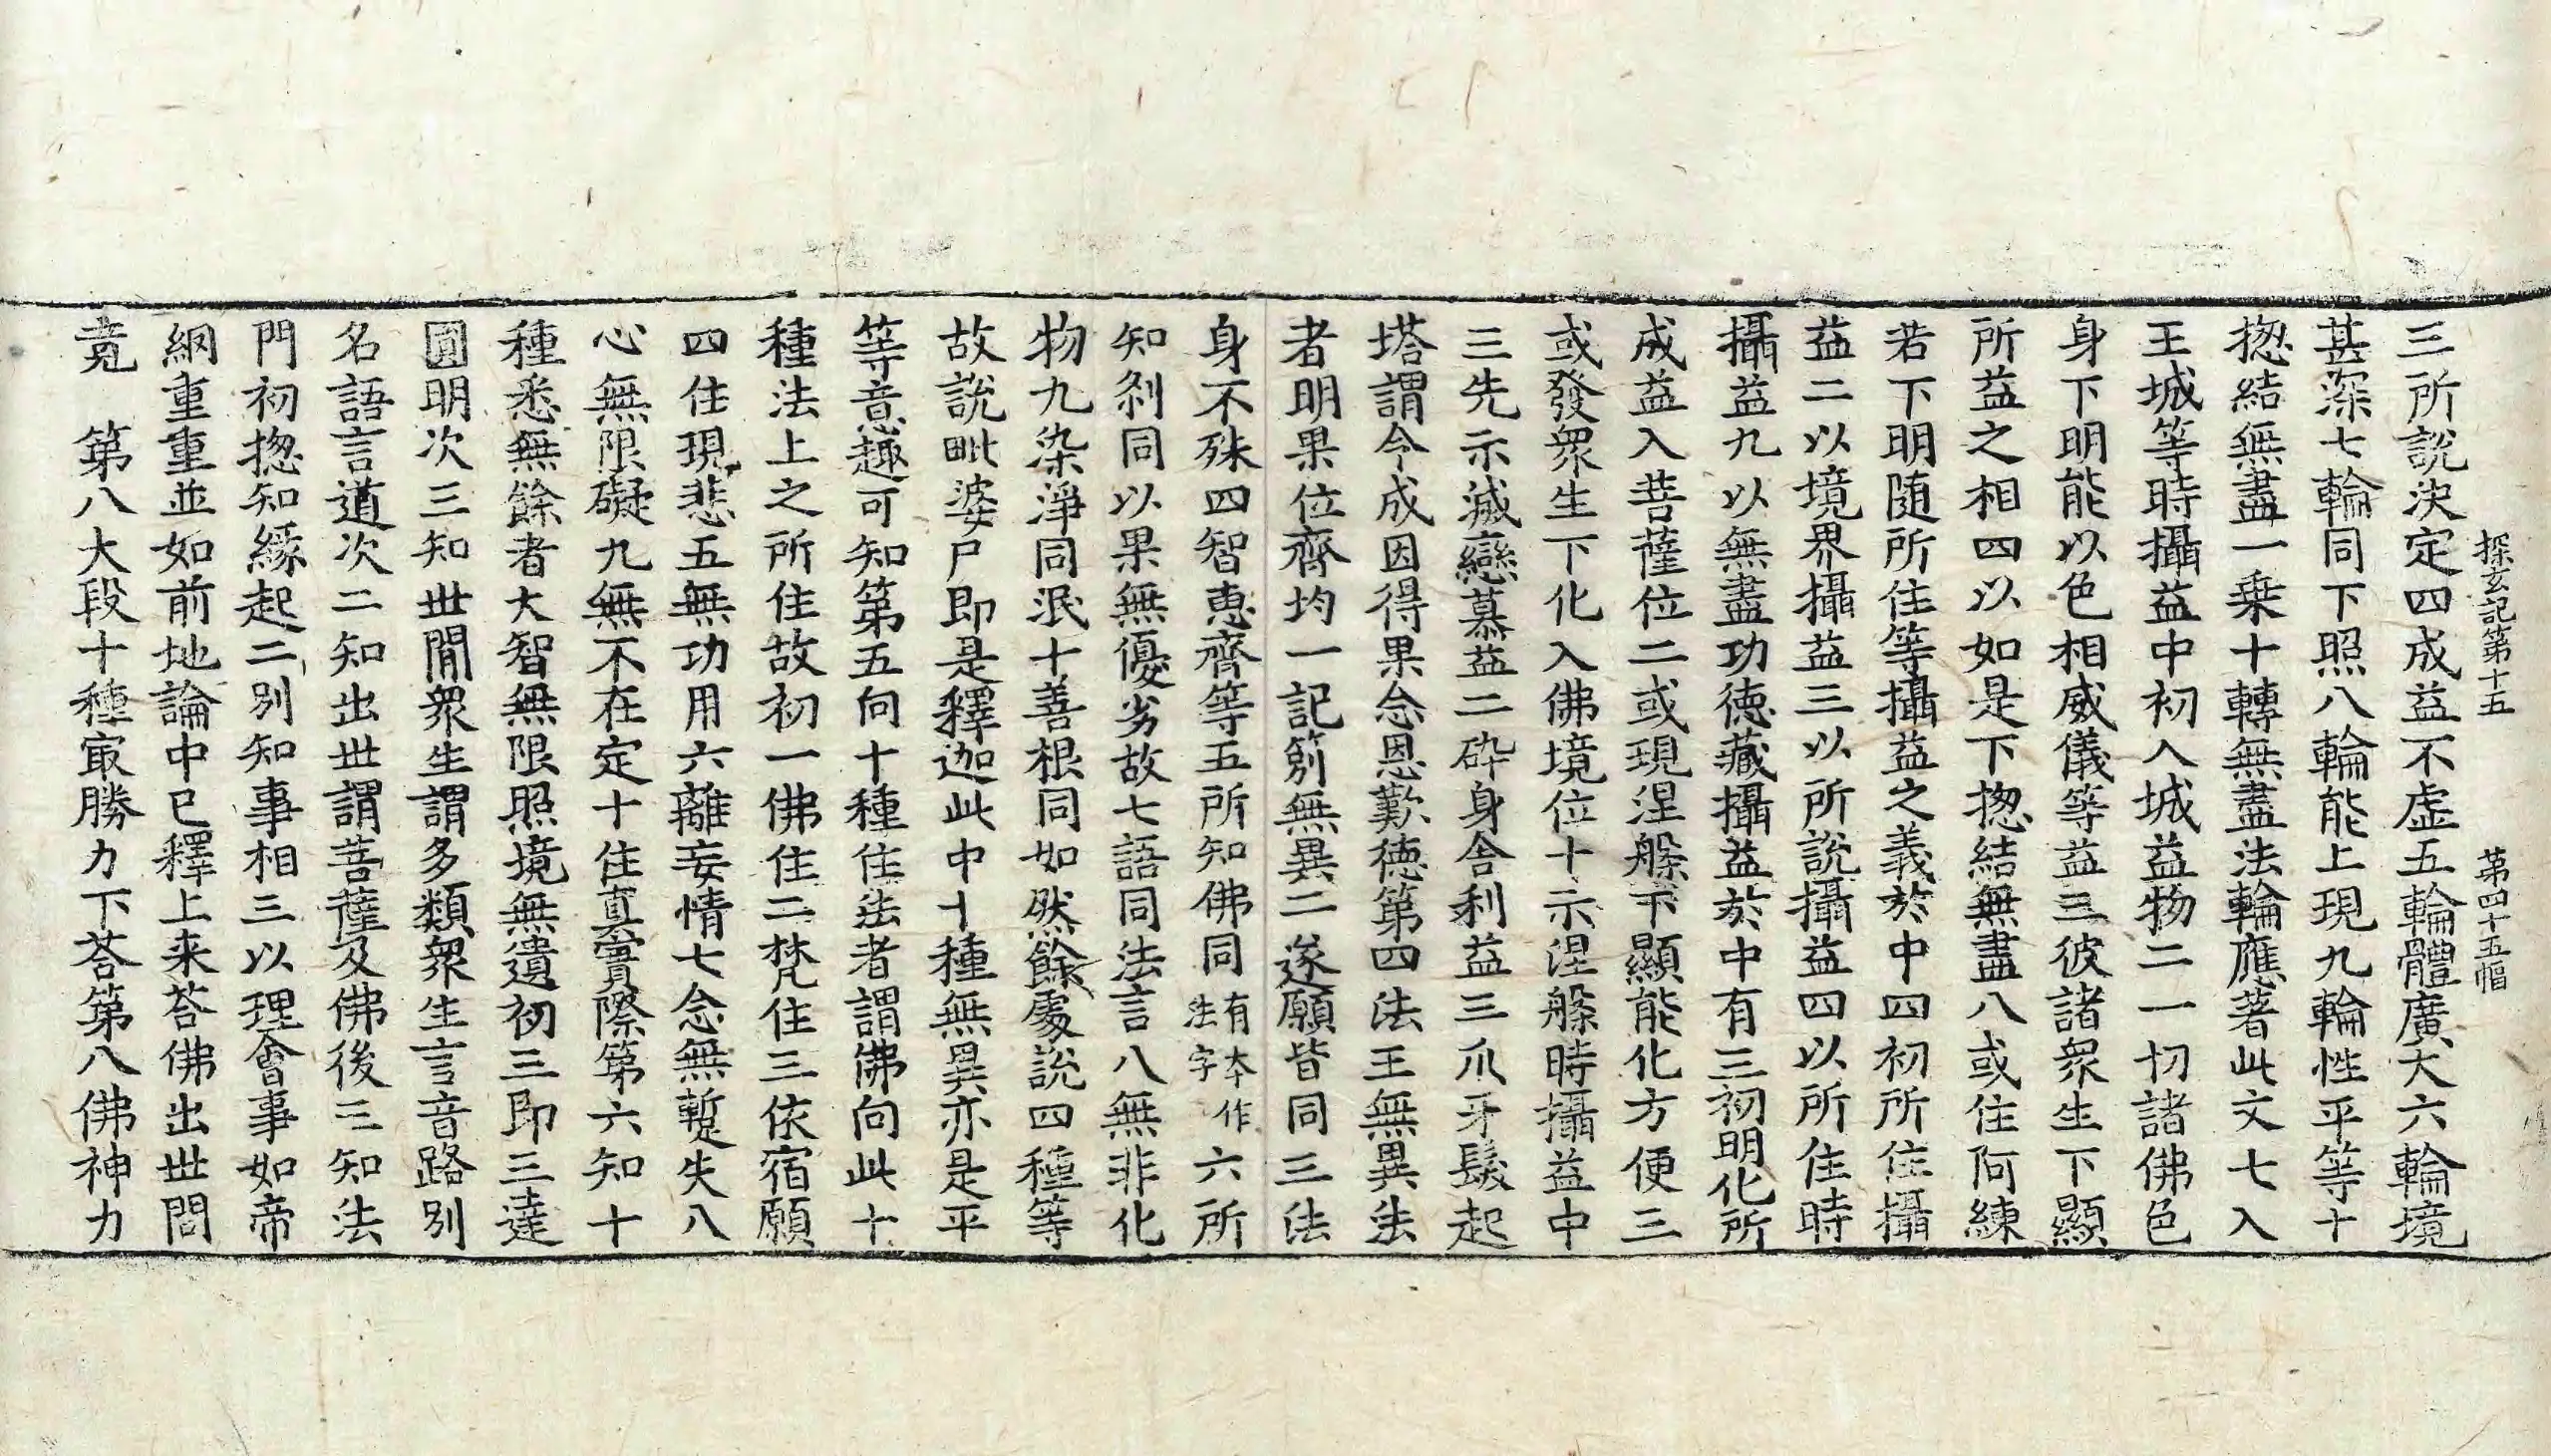 探玄記第十五　第四十五幅
三所說決定四成益不虛五輪體廣大六輪境
甚深七輪同下照八輪能上現九輪性平等十
揔結無盡一乗十轉無盡法輪應著此文七入
王城等時攝益中初入城益物二一切諸佛色
身下明能以色相威儀等益三彼諸衆生下顯
所益之相四以如是下揔結無盡八或住阿練
若下明随所住等攝益之義於中四初所住攝
益二以境界攝益三以所說攝益四以所住時
攝益九以無盡功徳藏攝益於中有三初明化所
成益入菩薩位二或現涅槃下顯能化方便三
或發衆生下化入佛境位十示涅槃時攝益中
三先示滅戀慕益二碎身舎利益三爪牙髮起
塔謂今成因得果念恩歎徳第四法王無異法
者明果位齊均一記莂無異二遂願皆同三法
身不殊四智恵齊等五所知佛同有本作法字六所
知刹同以果無優劣故七語同法言八無非化
物九染淨同泯十善根同如然餘處説四種等
故說毗婆尸即是釋迦此中十種無異亦是平
等意趣可知第五向十種住法者謂佛向此十
種法上之所住故初一佛住二梵住三依宿願
四住現悲五無功用六離妄情七念無蹔失八
心無限礙九無不在定十住真實際第六知十
種悉無餘者大智無限照境無遺初三即三達
圓明次三知世間衆生謂多類衆生言音路別
名語言道次二知出世謂菩薩及佛後二知法
門初揔知縁起二別知事相三以理會事如帝
網重重並如前地論中已釋上来荅佛出世間
竟　第八大段十種㝡勝力下荅第八佛神力